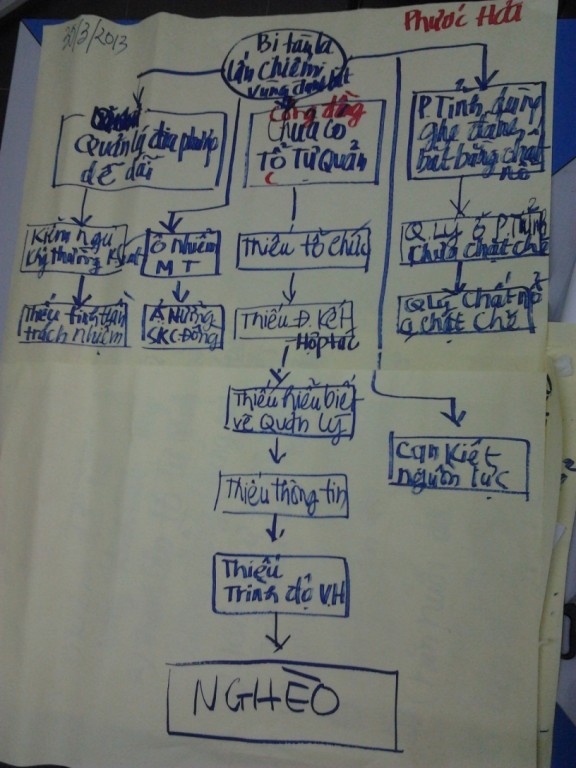 30/3/2013
Phước Hòa
Bị tàu lạ
lấn chiếm
vùng đánh bắt
Quản lý địa phương
dễ dãi
Cộng đồng
chưa có
Tổ Tự Quản
P. Tỉnh dùng
ghe đánh
bắt bằng chất
nổ
Kiểm ngư
Kg thường K soát
Ô nhiễm
MT
Thiếu tổ chức
Q. Lý ở P. Tỉnh
chưa chặt chẽ
Thiếu tinh thần
trách nhiệm
Ả Hưởng
SKC.Đồng
Thiếu Đ. Kết
Hợp tác
QLý chất nổ
chặt chẽ
Thiếu hiểu biết
về Quản lý
Cạn Kiệt
nguồn lực
Thiếu thông tin
Thiếu
Trình độ V.H
NGHÈO